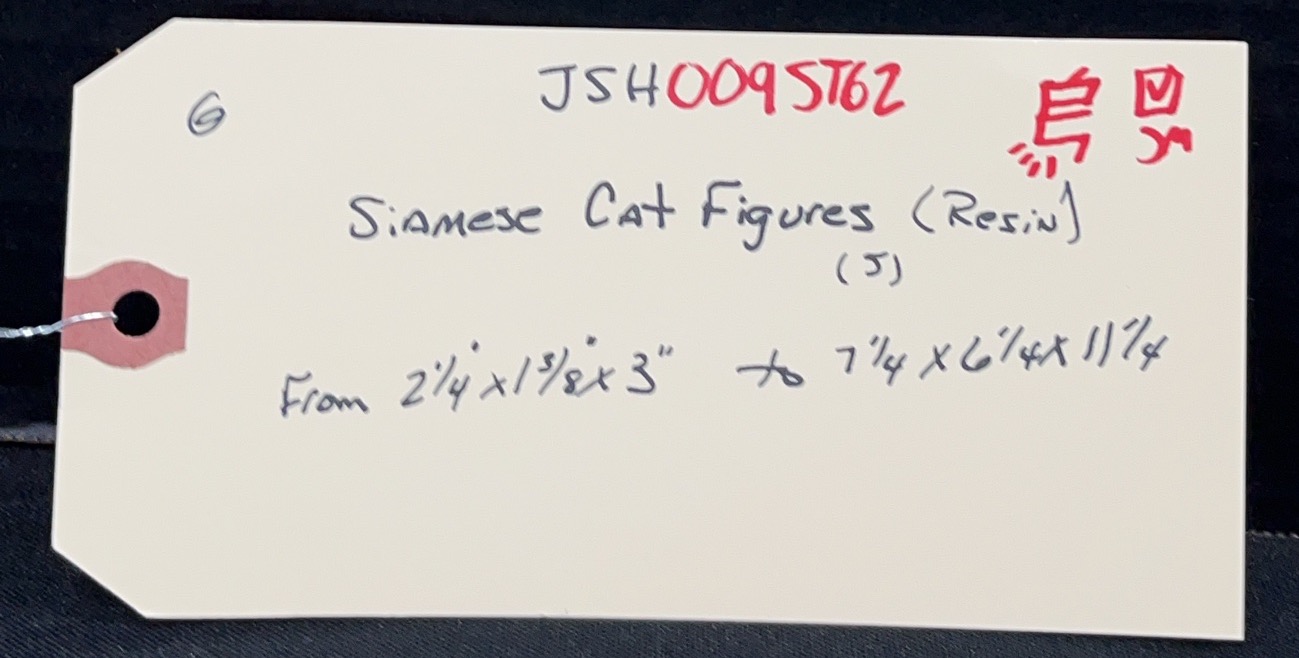 G
JSH0095T62
Siamese Cat Figures (Resin)
(5)
From 2 1/4" x 1 3/8" x 3" to 7 1/4 x 6 1/4 x 11 1/4